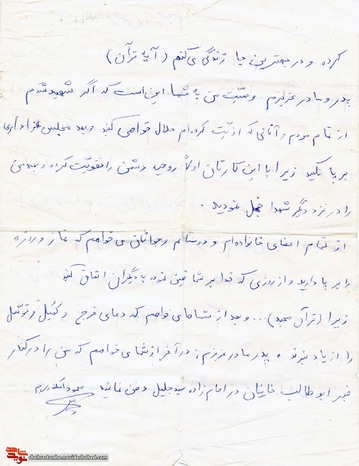 کرده و در بهترین جا زندگی می‌کنم (آیه قرآن)
پدر و مادر عزیزم وصیت من به شما این است که اگر شهید شدم
از تمام مردم و آنانی که اذیت کرده‌ام حلال خواهی کنید و بعد مجلس عزاداری
برپا نکنید زیرا با این کارتان اولاً روحیه دشمن را تقویت کرده و بعد من
را در نزد دیگر شهدا خجل نمودید.
از تمام اعضای خانواده‌ام و دوستانم و جوانان می‌خواهم که نماز و روزه
را بر پا دارید و از رزقی که خدا بر شما تعیین نموده به دیگران انفاق کنید
زیرا (قرآن مجید)... و بعد از شما می‌خواهم که دعای فرج و کمیل و توسل
را از یاد نبرید و پدر و مادر عزیزم در آخر از شما می‌خواهم که من را در کنار
قبر ابوطالب خانیان در امامزاده سید جلیل دفن نمائید
shohrestanha.navideshahed.com